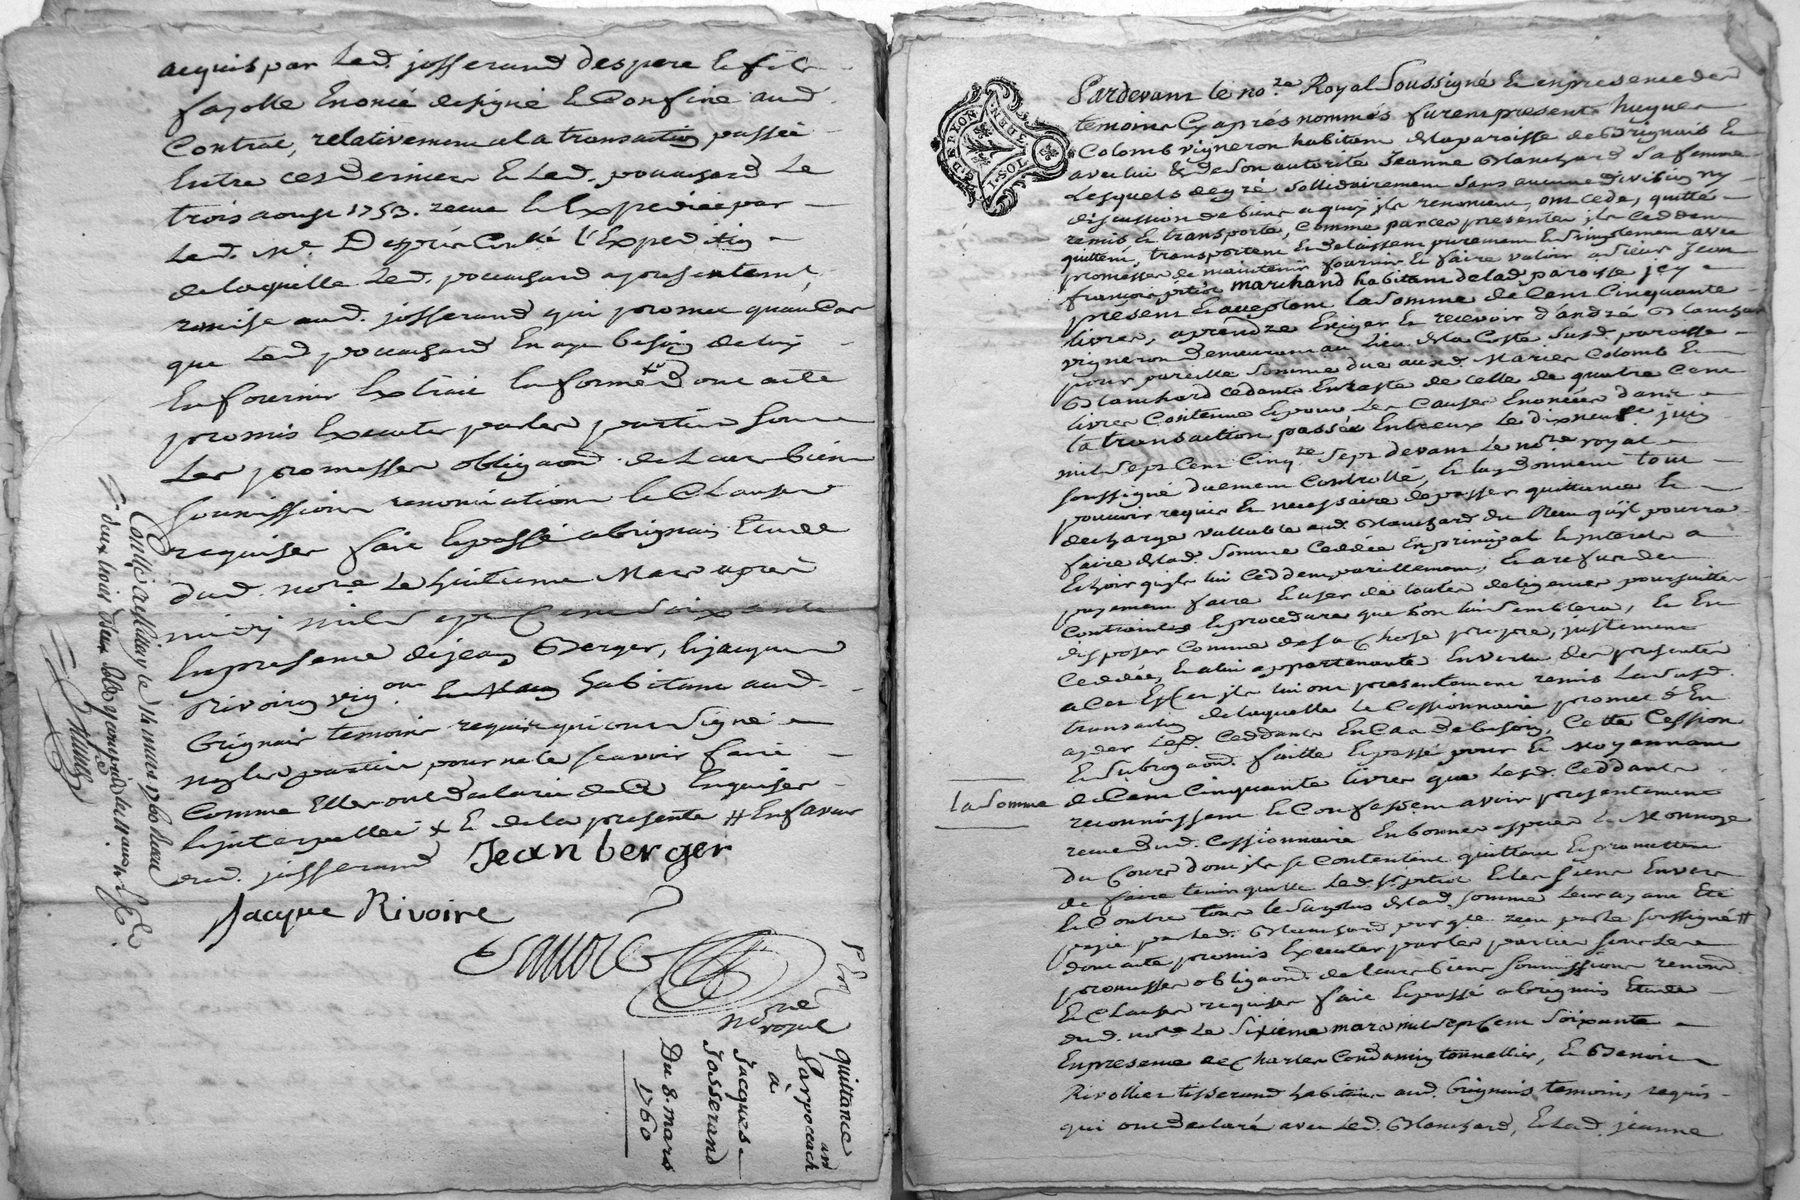 acquis par led. josserand despere le fils
fayolle Enoncé designé & Confiné aud.
Contrat, relativement a la transaction passée
Entre ces derniers & Led. Le
trois aoust 1753. receue & Expediée par
Led. Me. Controllé l'Expedition
de laquelle Led. a presentement
remise aud. josserand qui promet quand
que Led. En aye besoin de luy
En fournir Extrait En forme dont acte
promis Executer par les parties sous
Les promesses obligaons. de Leurs biens
soumissions renonciations & Clauses
requises fait & passé a brignais Etude
dud. nore. Le huitieme Mars apres
midy mil sept Cent soixante
En presence de jean Berger, & jacques
Rivoire vignons. habitans aud.
brignais temoins requis qui ont signé
les parties pour ne le scavoir faire
Comme Elles ont declaré de ce Enquises
& jnterpellées & de la presente # En faveur
dud. josserand
Jean berger
Jacque Rivoire
nore
royal
Pour
quittance
à
Jacques
Josserand
Du 8. mars
1760
Controllé le 14 mars 1760 Reçu
Pardevant le nore. Royal Soussigné & en presence des
temoins Cy aprés nommés furent presents hugues
Colomb vigneron habitant de la paroisse de Brignais &
avec lui & de Son autorité Jeanne Blanchard Sa femme
Lesquels de gré Sollidairement Sans aucune division ny
discussion de biens a quoy jls renoncent, ont cedé, quitté
remis & transporté, Comme par ces presentes jls Ceddent
quittent, transportent & delaissent purement & Simplement avec
promesse de maintenir fournir & faire valoir a sieur Jean
françois marchand habitant de lad. paroisse jcy
present & acceptant La Somme de Cent Cinquante
livres, a prendre Exiger & recevoir d'andré Blanchard
vigneron demeurant au Lieu de la Coste Susd. paroisse
pour pareille Somme due auxd. Mariés Colomb &
Blanchard cedants En reste de celle de quatre Cent
livres Contenue & pour Les Causes Enoncées dans
la transaction passée Entr'eux Le dix neuf juin
mil Sept Cent Cinqte. Sept devant Le nore. royal
Soussigné duement Controllé, & luy donnent tout
pouvoir requis & necessaire de passer quittance &
decharge vallable aud. Blanchard du Reçu qu'jl pourra
faire de lad. Somme Ceddée En principal & jnterets a
Echoir qu'jls lui Ceddent pareillement, & a refus de
payement faire & user de toutes diligences poursuittes
Contraintes & procedures que bon lui Semblera, & En
disposer Comme de sa Chose propre, justement
Ceddée, & a lui appartenante En vertu des presentes
a Cet Effet jls lui ont presentement remis La Susd.
transaction de laquelle Le Cessionnaire promet d'En
ayder Lesd. Ceddants En Cas de besoin, Cette Cession
& Subrogaon. faitte & passée pour & Moyennant
la Somme
de Cent Cinquante livres que Lesd. Ceddants
reconnoissent & Confessent avoir presentement
receu dud. Cessionnaire En bonnes especes & Monnoye
du Cours dont jls se Contentent quittent & promettent
de faire tenir quitte Led. Sr. & les Siens Envers
& Contre tous le Surplus de lad. Somme Leur ayant Eté
payé par Led. Blanchard par qce. reçu par le Soussigné #
dont acte promis Executer par les parties Sous Leurs
promesses obligaons. de Leurs biens Soumissions renonc.
& Clauses requises fait & passé a brignais Etude
dud. nore. Le Sixieme mars mil Sept Cent Soixante
En presence de Charles Condamin tonnellier, & Benoit
Rivollier tisserand habitans aud. brignais temoins requis
qui ont declaré avec Led. Blanchard, & Lad. jeanne